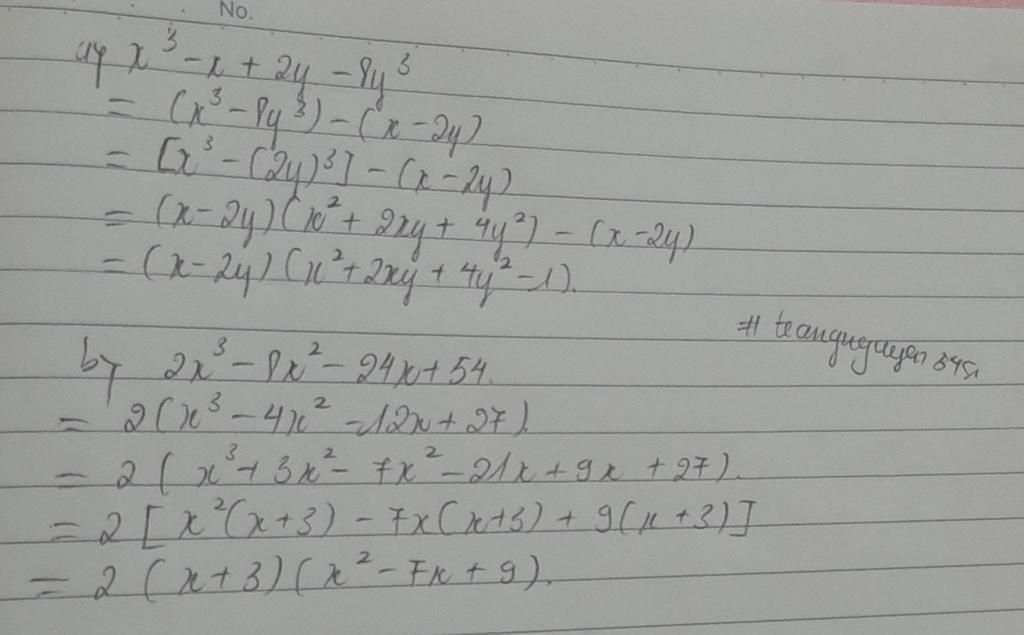 No.
a, x³ - x + 2y - 8y³
= (x³ - 8y³) - (x - 2y)
= [x³ - (2y)³] - (x - 2y)
= (x - 2y) (x² + 2xy + 4y²) - (x - 2y)
= (x - 2y) (x² + 2xy + 4y² - 1).
b, 2x³ - 8x² - 24x + 54.
= 2 (x³ - 4x² - 12x + 27).
= 2 ( x³ + 3x² - 7x² - 21x + 9x + 27).
= 2 [ x²(x + 3) - 7x(x + 3) + 9(x + 3)]
= 2 (x + 3) (x² - 7x + 9).